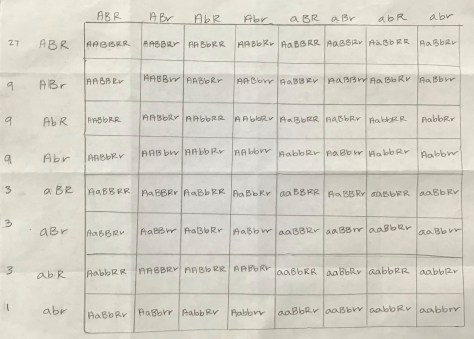 ABR ABr AbR Abr aBR aBr abR abr
27 ABR AABBRR AABBRr AABbRR AABbRr AaBBRR AaBBRr AaBbRR AaBbRr
9 ABr AABBRr AABBrr AABbRr AABbrr AaBBRr AaBBrr AaBbRr AaBbrr
9 AbR AABbRR AABbRr AAbbRR AAbbRr AaBbRR AaBbRr AabbRR AabbRr
9 Abr AABbRr AABbrr AAbbRr AAbbrr AabbRr AaBbrr AabbRr Aabbrr
3 aBR AaBBRR AaBBRr AaBbRR AaBbRr aaBBRR AaBBRr aaBbRR aaBbRr
3 aBr AaBBRr AaBBrr AaBbRr AaBbrr aaBBRr aaBBrr aaBbRr aaBbrr
3 abR AabbRR AABBRr AABbRR AABbRr aaBbRR aaBbRr aabbRR aabbRr
1 abr AaBbRr AaBbrr AabbRr Aabbrr aaBbRr aaBbrr aabbRr aabbrr